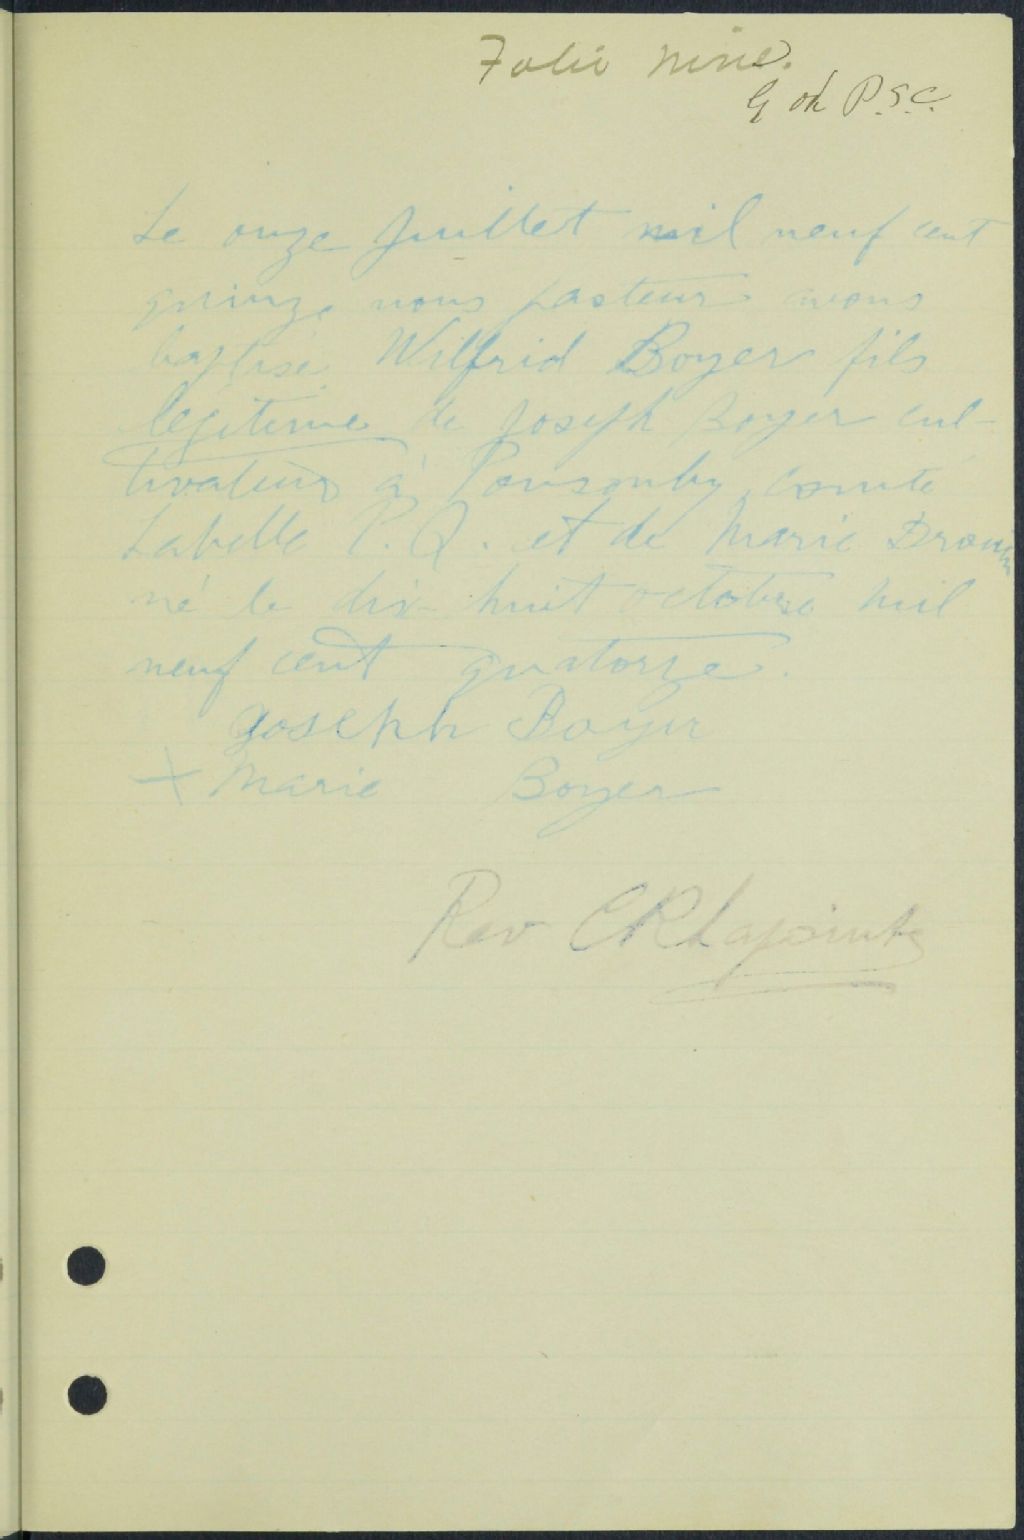 Folio nine.
G oh P.S.C.
Le onze Juillet mil neuf cent
quinze nous pasteur avons
baptisé Wilfrid Boyer fils
legitime de Joseph Boyer cul-
tivateur à Ponsonby, comté
Labelle P.Q. et de Marie Drouin
né le dix-huit octobre mil
neuf cent quatorze.
Joseph Boyer
+ Marie Boyer
Rev C R Lapointe